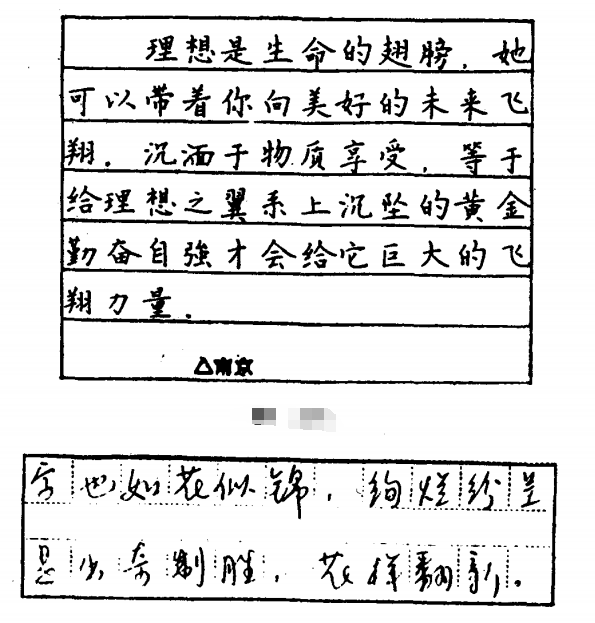 理想是生命的翅膀．她
可以带着你向美好的未来飞
翔．沉湎于物质享受．等于
给理想之翼系上沉坠的黄金
勤奋自強才会给它巨大的飞
翔力量．
△南京
字也如花似锦，绚烂纷呈
思出奇制胜，花样翻新。